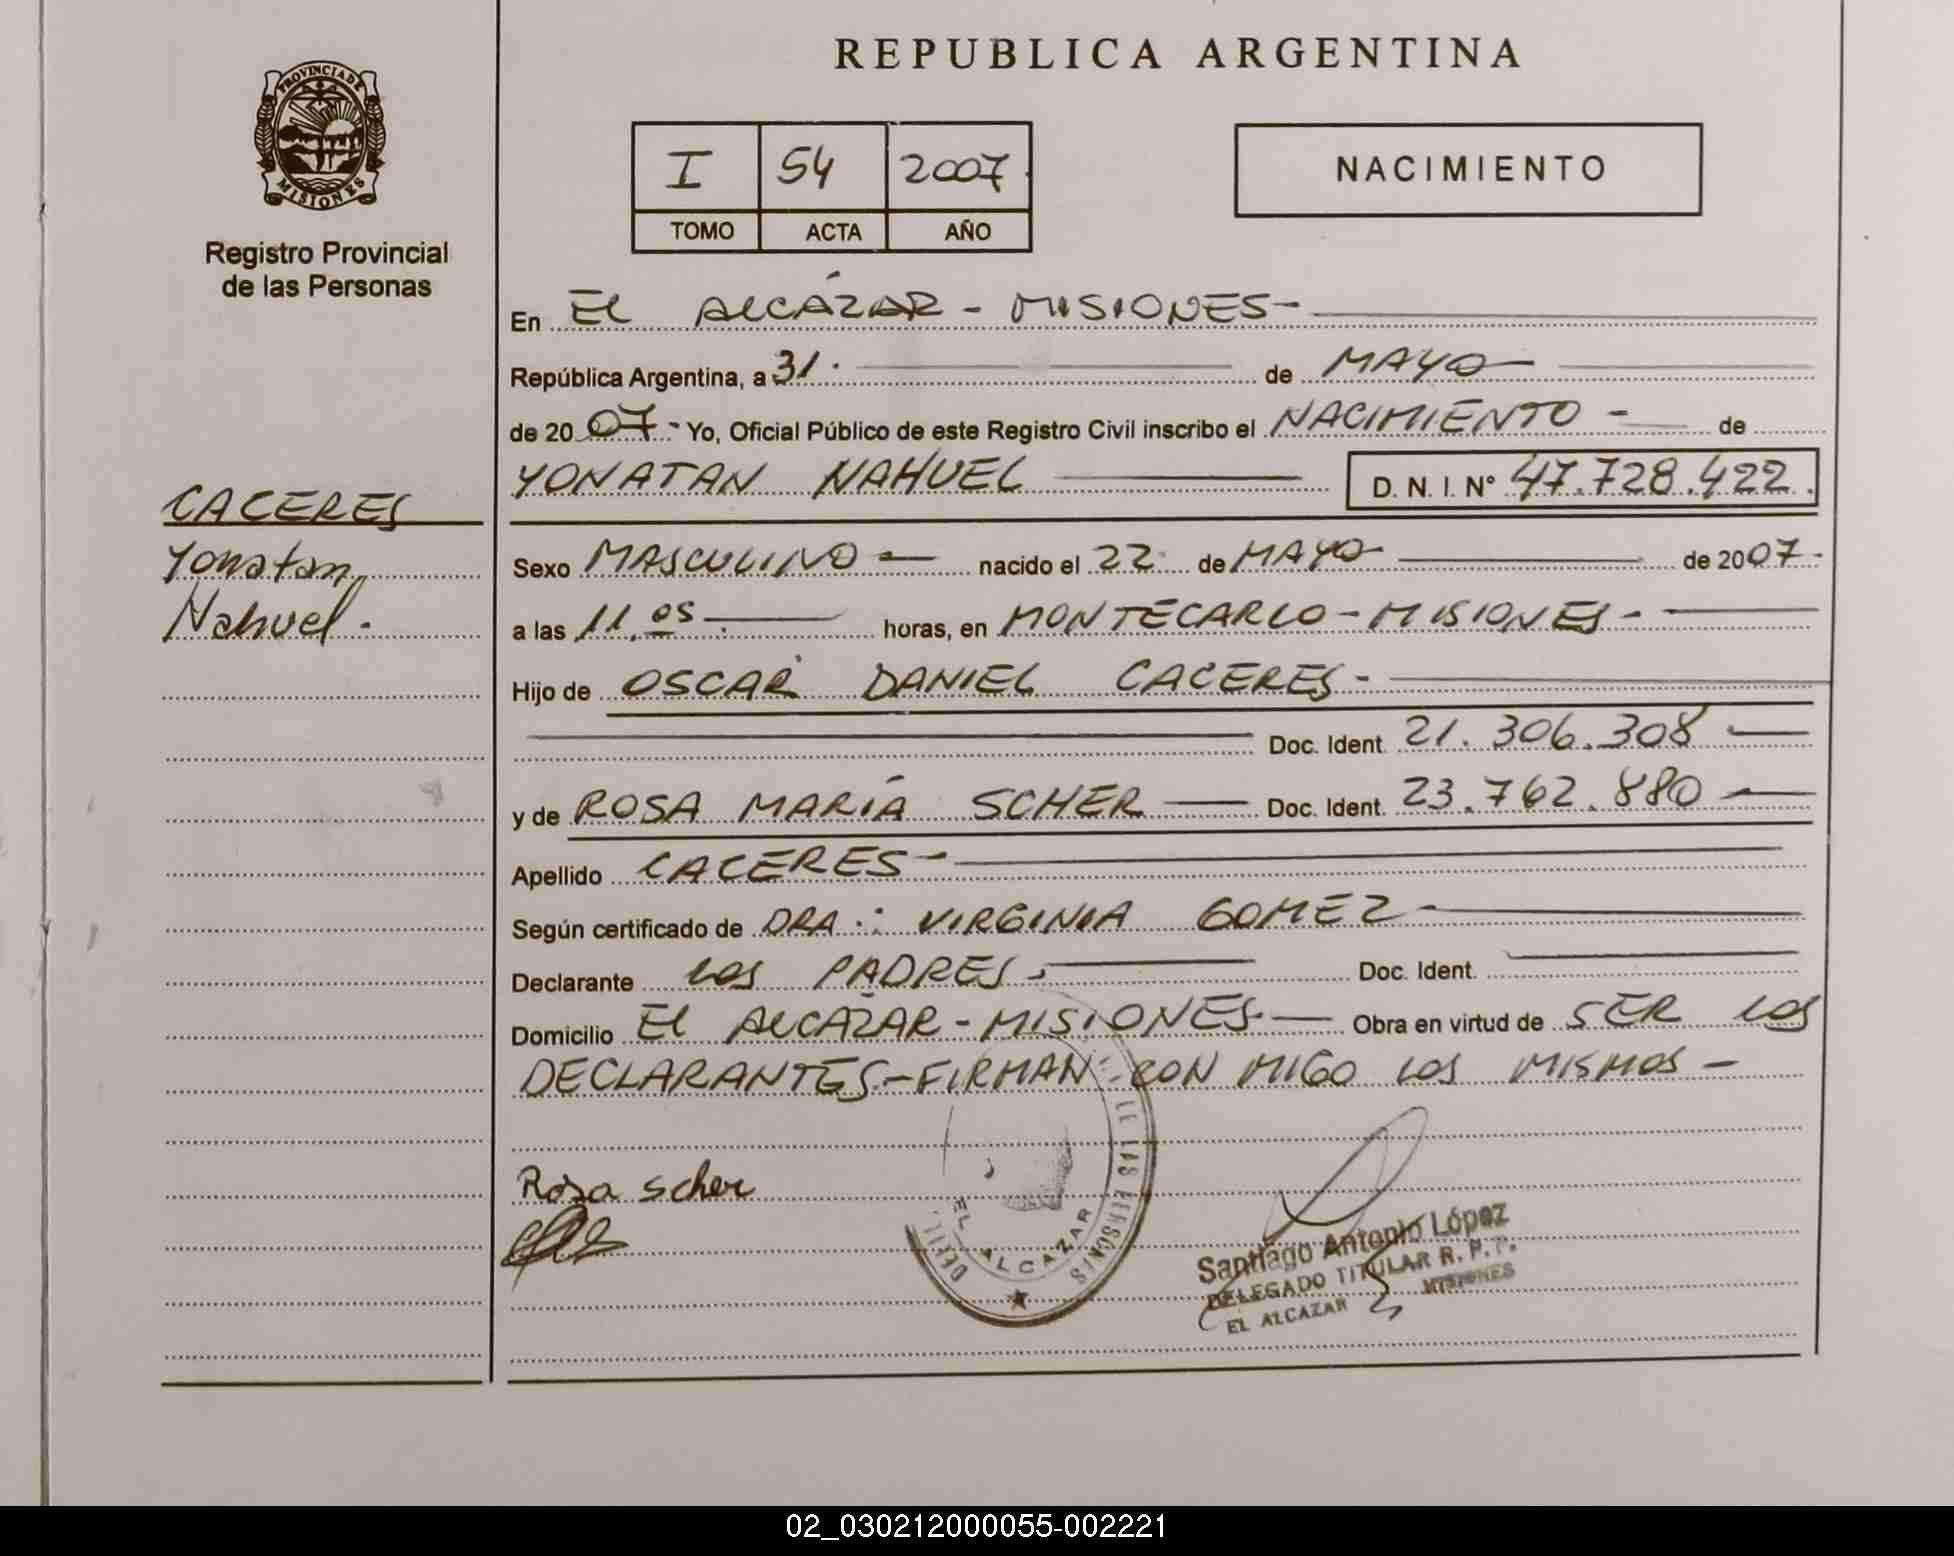 REPUBLICA ARGENTINA
PROVINCIA DE
MISIONES
Registro Provincial
de las Personas
I 54 2007
TOMO ACTA AÑO
NACIMIENTO
En EL ALCÁZAR - MISIONES -
República Argentina, a 31. de MAYO
de 2007.- Yo, Oficial Público de este Registro Civil inscribo el NACIMIENTO - de
YONATAN NAHUEL D. N. I. N° 47.728.422.
CACERES
Yonatan
Nahuel.
Sexo MASCULINO - nacido el 22 de MAYO de 2007.
a las 11.05. horas, en MONTECARLO - MISIONES -
Hijo de OSCAR DANIEL CACERES -
Doc. Ident. 21.306.308
y de ROSA MARÍA SCHER Doc. Ident. 23.762.880
Apellido CACERES -
Según certificado de DRA.: VIRGINIA GOMEZ -
Declarante LOS PADRES.- Doc. Ident.
Domicilio EL ALCÁZAR - MISIONES.- Obra en virtud de SER LOS
DECLARANTES - FIRMAN CON MIGO LOS MISMOS -
Rosa Scher
EL ALCAZAR
Santiago Antonio López
DELEGADO TITULAR R. P. P.
EL ALCAZAR MISIONES
02_030212000055-002221